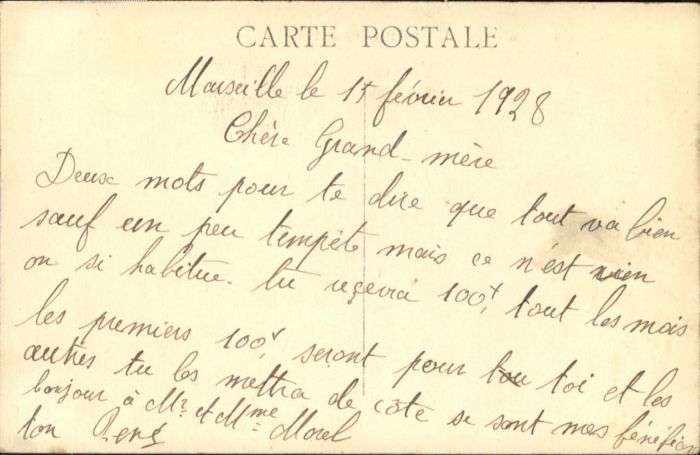 CARTE POSTALE
Marseille le 1r février 1928
Chère Grand-mère
Deux mots pour te dire que tout va bien
sauf un peu tempête mais ce n'est rien
on si habitue. tu reçevra 100f, tout les mois
les premiers 100f, seront pour toi et les
autres tu les mettra de côte se sont mes bénéfices
bonjour à Mr et Mme Morel
ton René